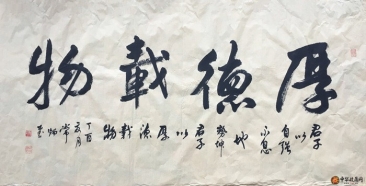 厚德載物
君子
以
自强
不息
地
勢坤
君子
以
厚
德
載
物
丁酉
夏月